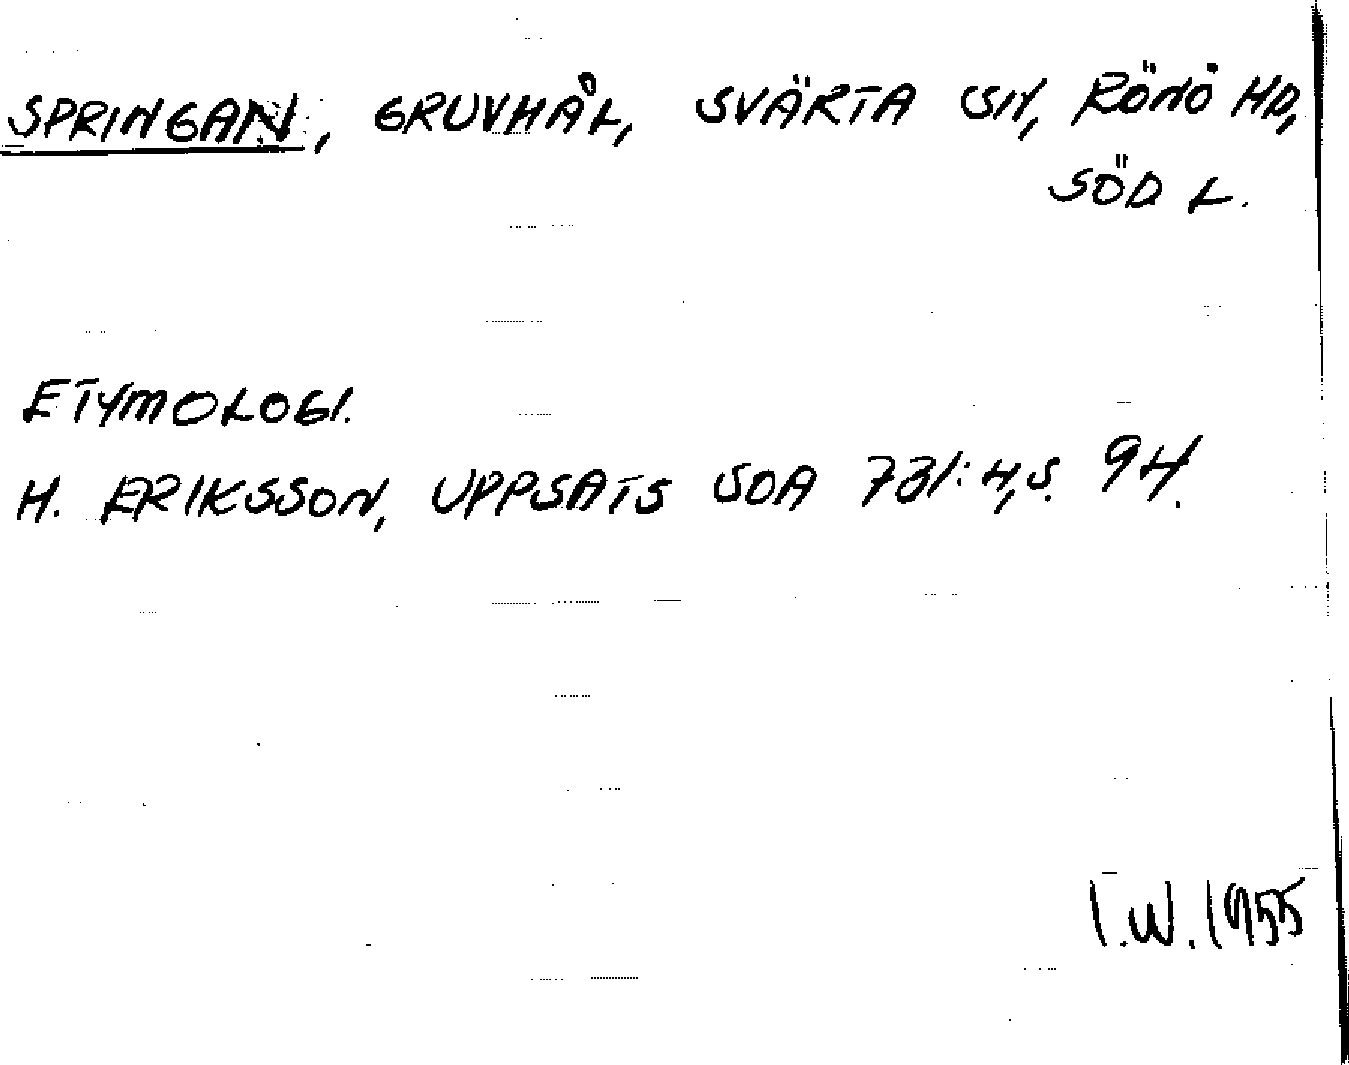 SPRINGAN, GRUVHÅL, SVÄRTA SN, RÖNÖ HD,
SÖD L.
ETYMOLOGI.
H. ERIKSSON, UPPSATS SOA 731:4, S. 94.
I.W. 1955